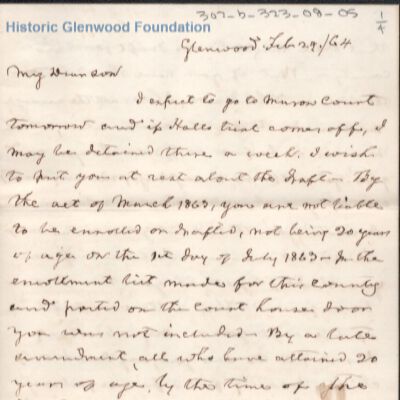 302-b-323-09-05
1/4
Historic Glenwood Foundation
Glenwood Feb 29/64
My Dear son
I expect to go to Munson Court
tomorrow and if Halls trial comes off, I
may be detained there a week. I wish
to put you at rest about the draft - By
the act of March 1863, you are not liable
to be enrolled or drafted, not being 20 years
of age on the 1st day of July 1863 - In the
enrollment list made for this county
and posted on the Court house door
you were not included - By a late
amendment, all who have attained 20
years of age, by the time of the